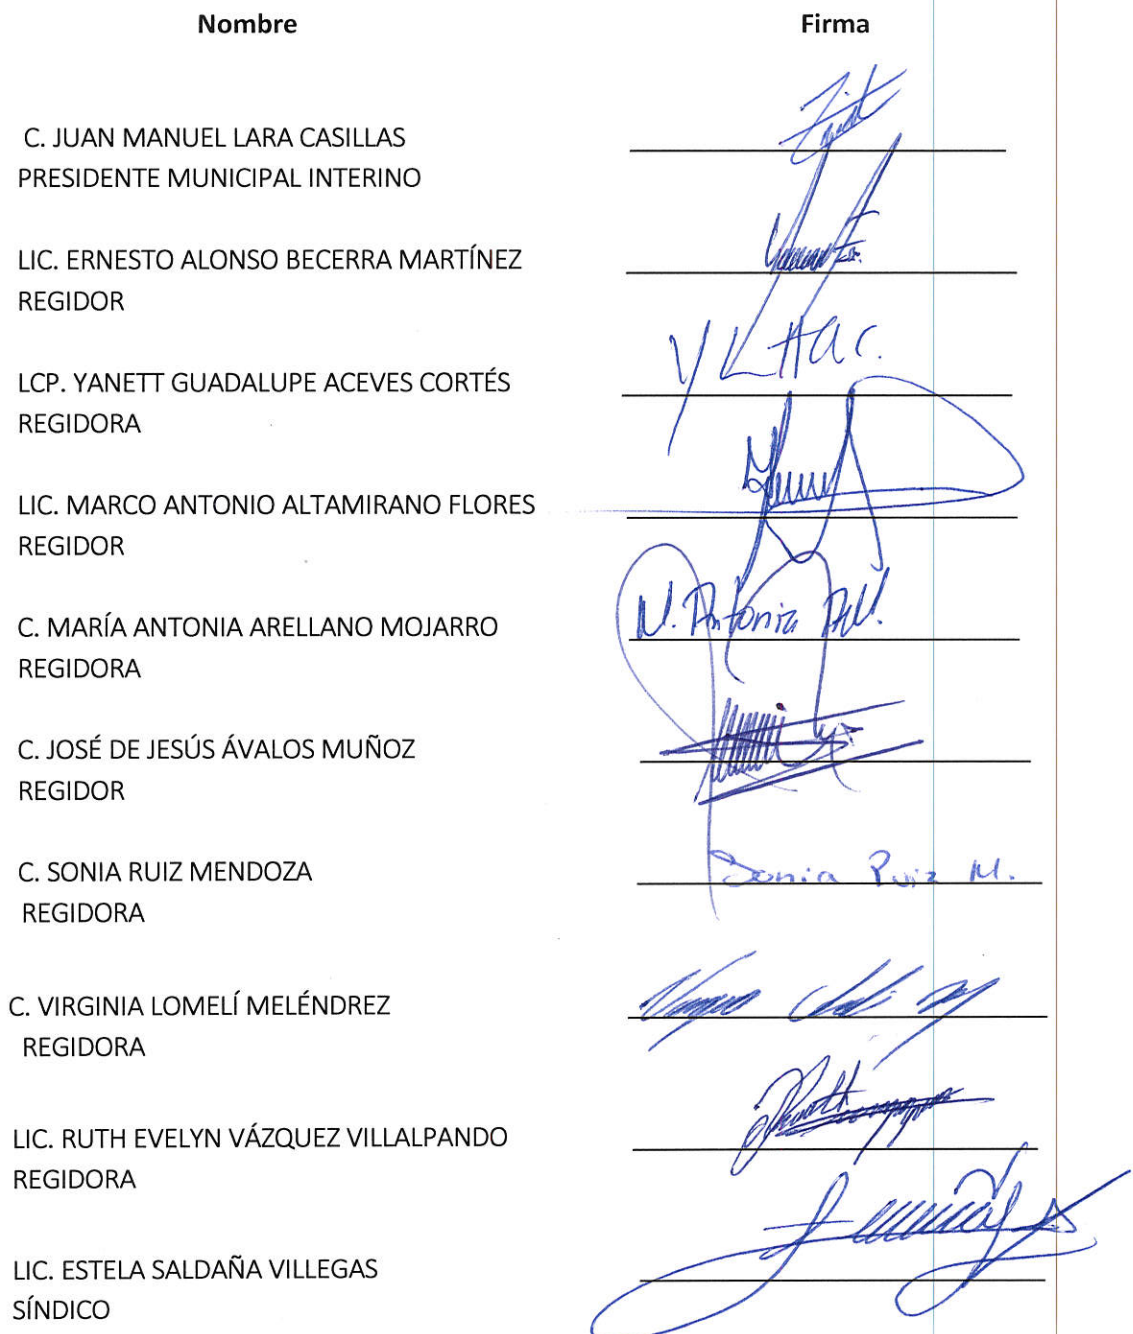 Nombre Firma
C. JUAN MANUEL LARA CASILLAS
PRESIDENTE MUNICIPAL INTERINO
LIC. ERNESTO ALONSO BECERRA MARTÍNEZ
REGIDOR
LCP. YANETT GUADALUPE ACEVES CORTÉS
REGIDORA
LIC. MARCO ANTONIO ALTAMIRANO FLORES
REGIDOR
C. MARÍA ANTONIA ARELLANO MOJARRO
REGIDORA
C. JOSÉ DE JESÚS ÁVALOS MUÑOZ
REGIDOR
C. SONIA RUIZ MENDOZA Sonia Ruiz M.
REGIDORA
C. VIRGINIA LOMELÍ MELÉNDREZ
REGIDORA
LIC. RUTH EVELYN VÁZQUEZ VILLALPANDO
REGIDORA
LIC. ESTELA SALDAÑA VILLEGAS
SÍNDICO